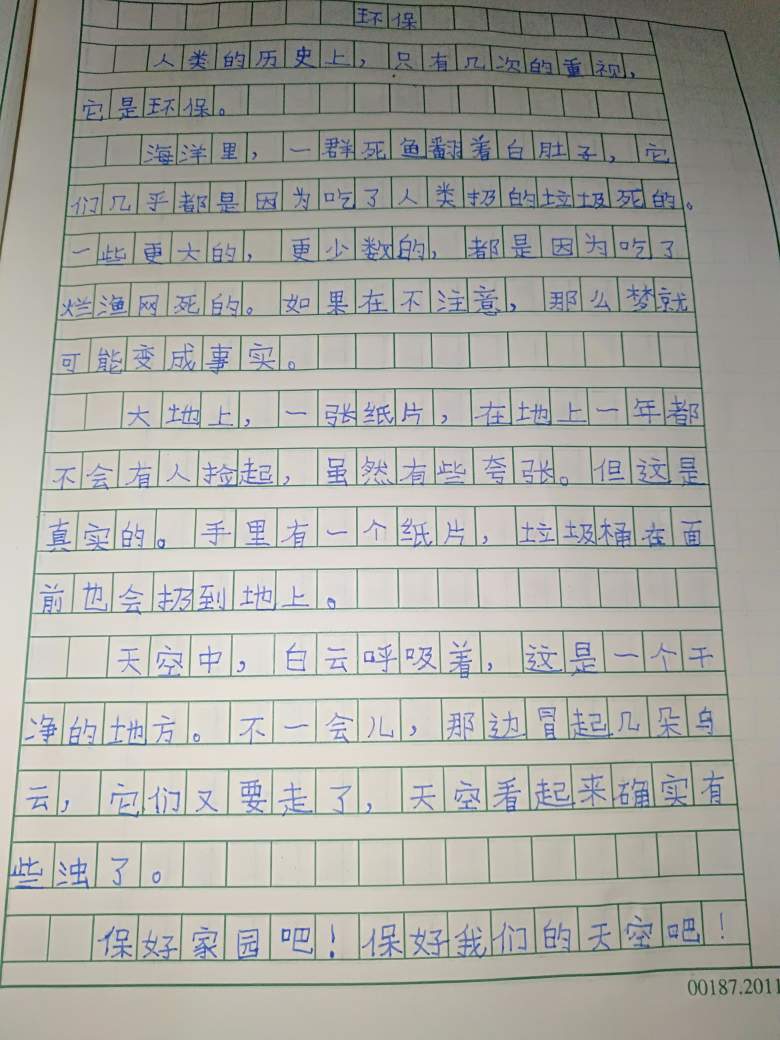 环保
人类的历史上，只有几次的重视，
它是环保。
海洋里，一群死鱼翻着白肚子，它
们几乎都是因为吃了人类扔的垃圾死的。
一些更大的，更少数的，都是因为吃了
烂渔网死的。如果在不注意，那么梦就
可能变成事实。
大地上，一张纸片，在地上一年都
不会有人捡起，虽然有些夸张。但这是
真实的。手里有一个纸片，垃圾桶在面
前也会扔到地上。
天空中，白云呼吸着，这是一个干
净的地方。不一会儿，那边冒起几朵乌
云，它们又要走了，天空看起来确实有
些浊了。
保好家园吧！保好我们的天空吧！
00187.2011